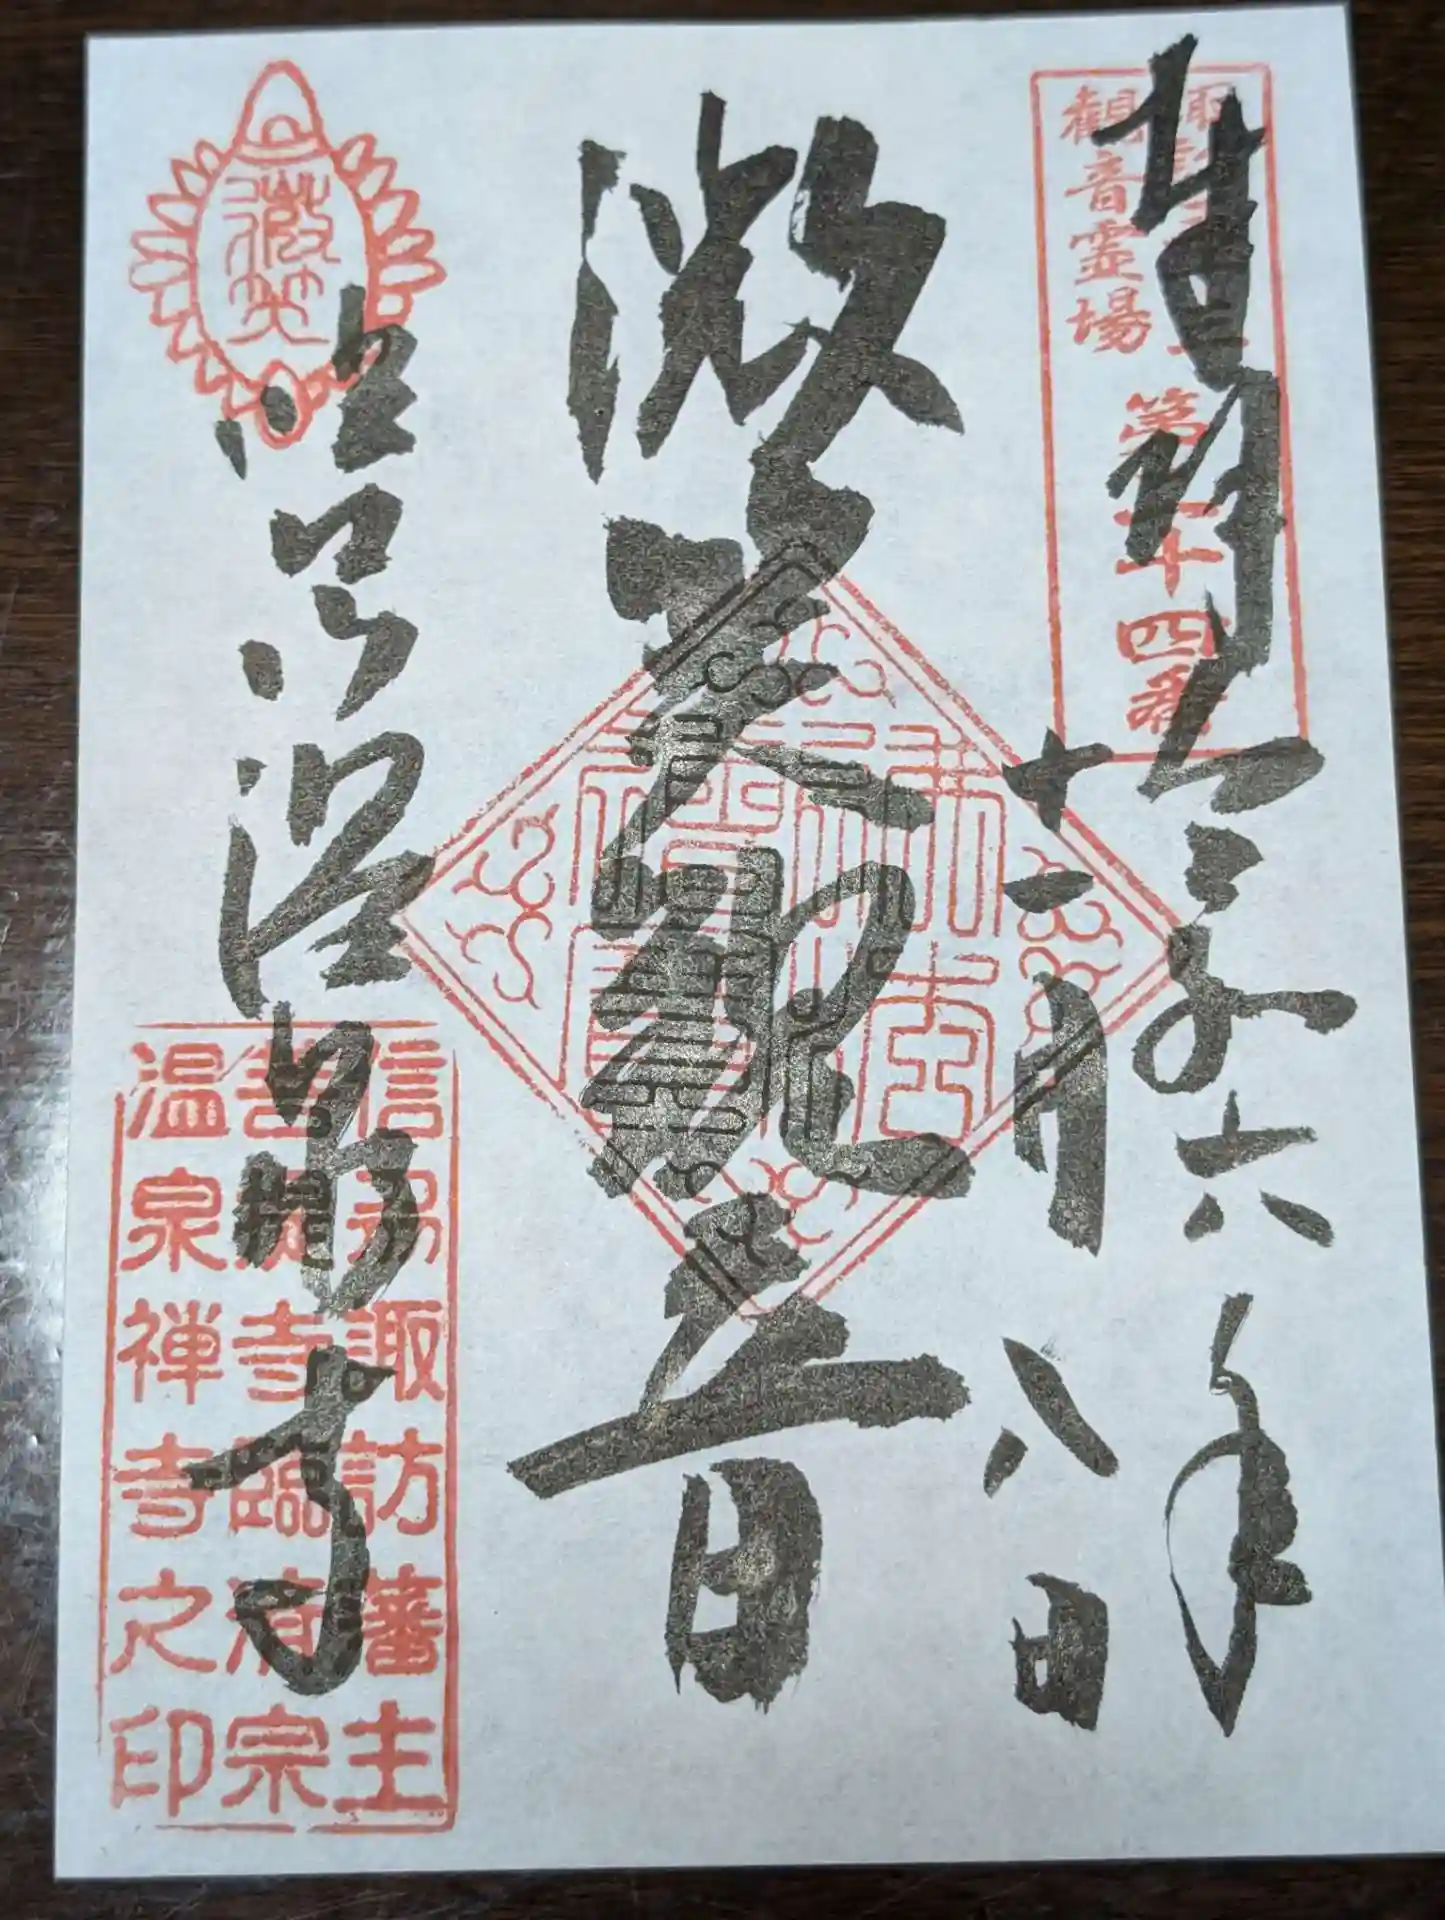 奉拝
令和六年
十二月八日
観音霊場
第二十四番
微笑観音
微笑
臨江山
温泉寺
信州諏訪藩主
菩提寺臨済宗
温泉禅寺之印